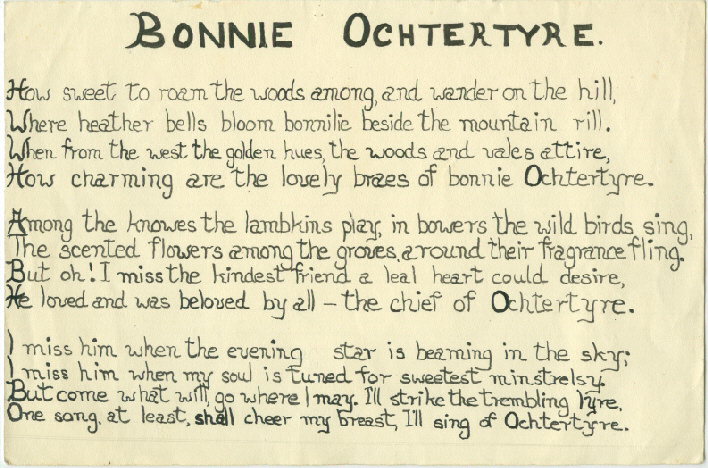 BONNIE OCHTERTYRE.
How sweet to roam the woods among, and wander on the hill,
Where heather bells bloom bonnilie beside the mountain rill.
When from the west the golden hues, the woods and vales attire,
How charming are the lovely braes of bonnie Ochtertyre.
Among the knowes the lambkins play, in bowers the wild birds sing,
The scented flowers among the groves, around their fragrance fling.
But oh! I miss the kindest friend a leal heart could desire,
He loved and was beloved by all – the chief of Ochtertyre.
I miss him when the evening star is beaming in the sky;
I miss him when my soul is tuned for sweetest minstrelsy.
But come what will, go where I may. I'll strike the trembling lyre,
One song, at least, shall cheer my breast, I'll sing of Ochtertyre.